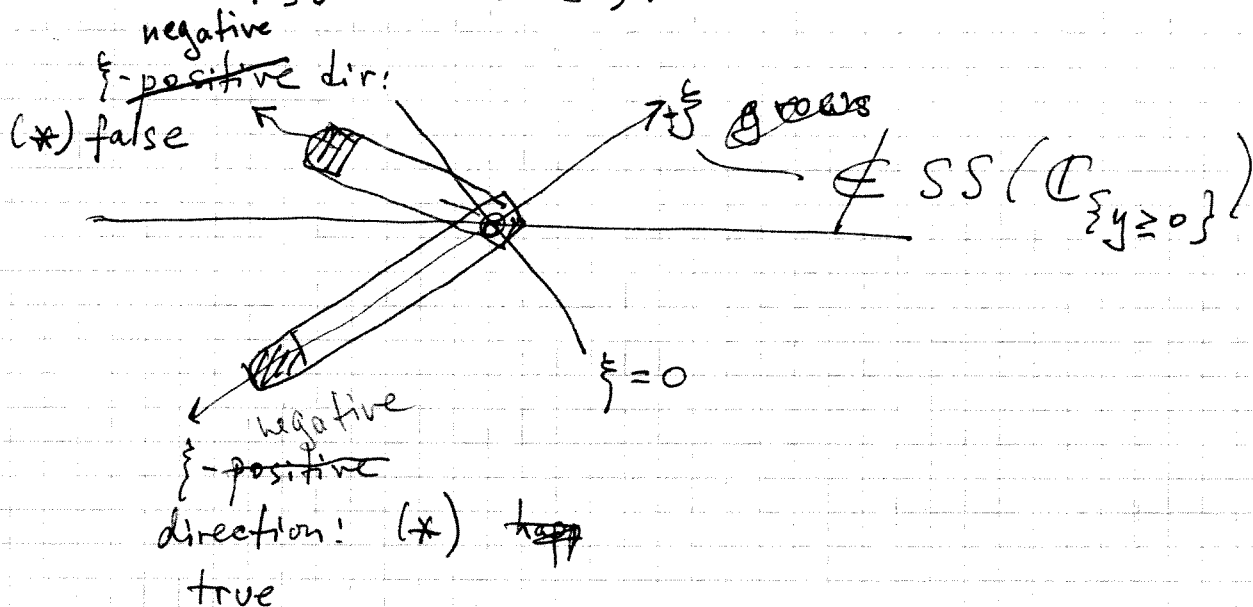 negative
ξ-positive dir:
(*) false
+ξ grows
∉ SS(ℂ_{y≥0})
ξ=0
negative
ξ-positive
direction: (*) happ
true